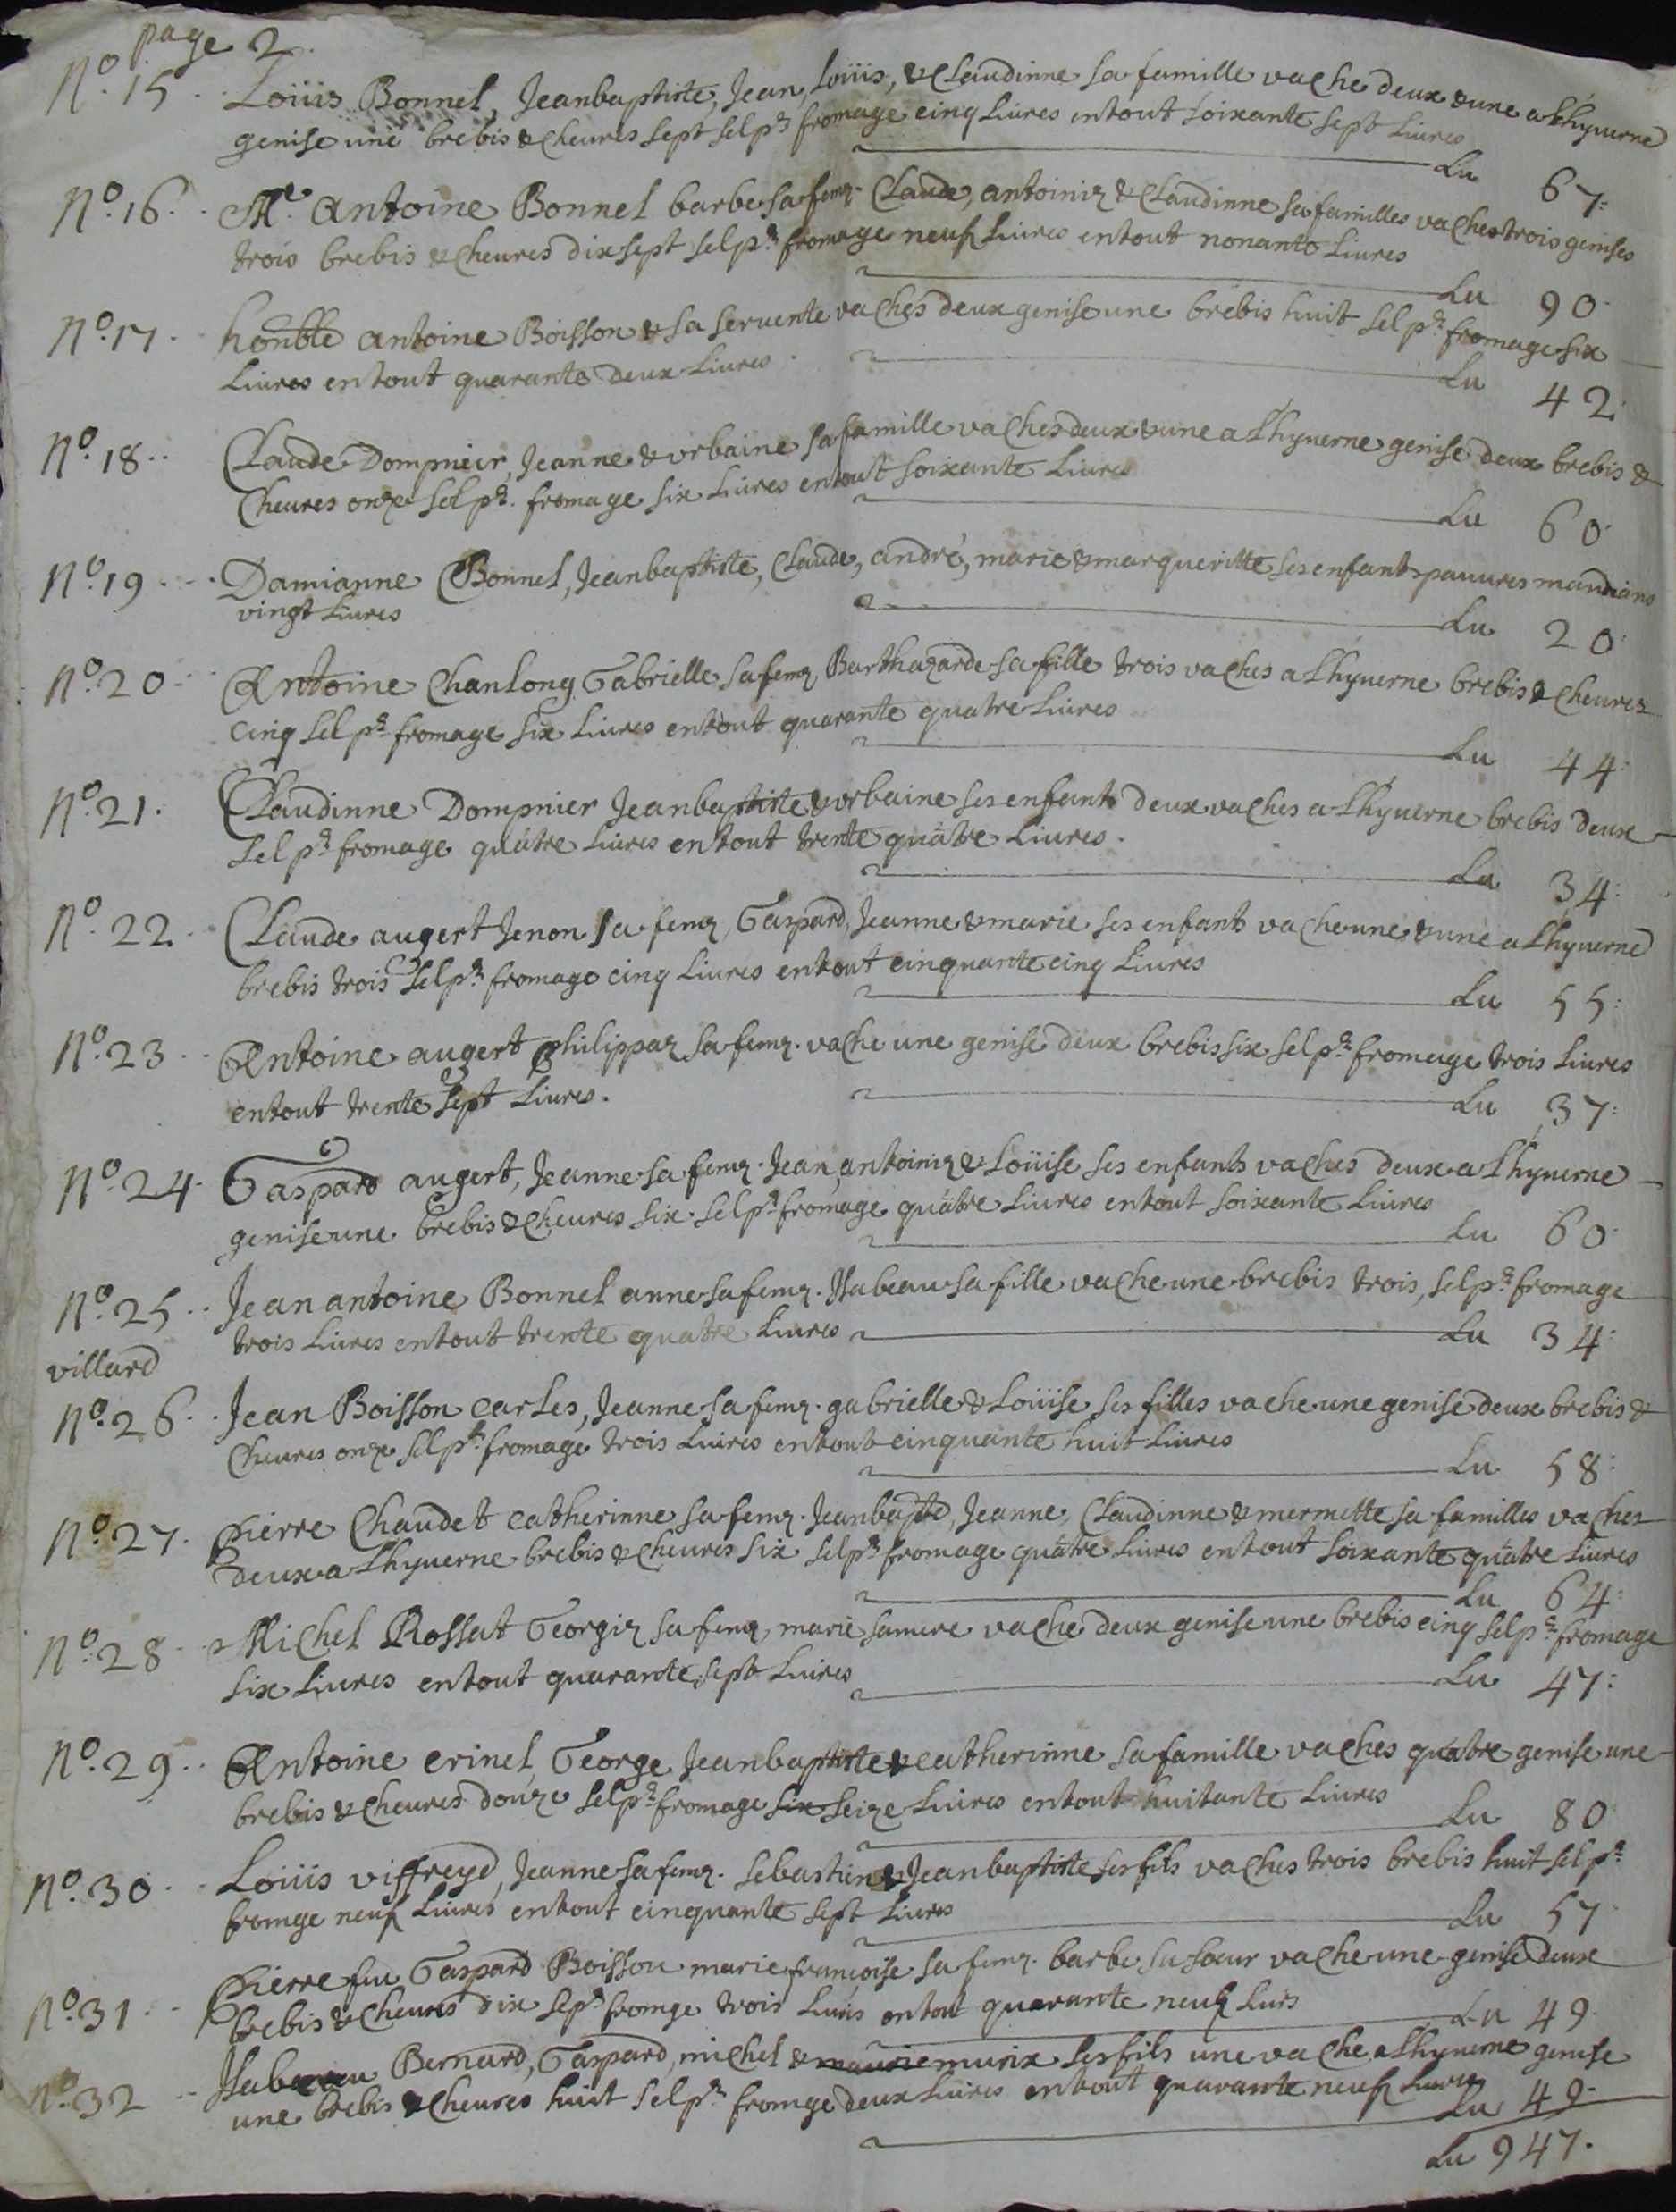 page 2
N.º 15 Loüis Bonnel, Jeanbaptiste, Jean, Loüis, & Claudinne sa famille vache deux & une a Lhyuerne
genise une brebis & Cheures sept sel p.r fromage cinq Liures entout soixante sept Liures
Lu 67:
N.º 16 M.e Antoine Bonnel barbe sa fem.e Claude, antoine & Claudinne sa familles vaches trois genises
trois brebis & Cheures dix sept sel p.r fromage neuf Liures entout nonante Liures
Lu 90
N.º 17 honble antoine Boisson & sa seruente vaches deux genise une brebis huit sel p.r fromage six
Liures entout quarante deux Liures
Lu 42
N.º 18 Claude Dompnier, Jeanne & vrbaine sa famille vaches deux & une a Lhyuerne genise deux brebis &
Cheures onze sel p.r fromage six Liures entout soixante Liures
Lu 60
N.º 19 Damianne Bonnel, Jeanbaptiste, Claude, andré, marie & marqueritte ses enfants pauures mandians
vingt Liures
Lu 20
N.º 20 Antoine Chanlong Gabrielle sa fem.e Barthazarde sa fille trois vaches a Lhyuerne brebis & Cheures
cinq sel p.r fromage six Liures entout quarante quatre Liures
Lu 44:
N.º 21 Claudinne Dompnier Jeanbaptiste & vrbaine ses enfants deux vaches a Lhyuerne brebis deux
sel p.r fromage quatre Liures entout trente quatre Liures.
Lu 34:
N.º 22 Claude augert Jenon sa fem.e, Gaspard, Jeanne & marie ses enfants vache une & une a Lhyuerne
brebis trois sel p.r fromage cinq Liures entout cinquante cinq Liures
Lu 55:
N.º 23 Antoine augert philippaz sa fem.e vache une genise deux brebis six sel p.r fromage trois Liures
entout trente sept Liures.
Lu 37:
N.º 24 Gaspard augert, Jeanne sa fem.e Jean, antoine & Loüise ses enfants vaches deux a Lhyuerne
genise une brebis & Cheures six sel p.r fromage quatre Liures entout soixante Liures
Lu 60
N.º 25 Jean antoine Bonnel anne sa fem.e Isabeau sa fille vache une brebis trois, sel p.r fromage
trois Liures entout trente quatre Liures Lu 34:
villard
N.º 26 Jean Boisson Carles, Jeanne sa fem.e gabrielle & Loüise ses filles vache une genise deux brebis &
Cheures onze sel p.r fromage trois Liures entout cinquante huit Liures
Lu 58:
N.º 27 Pierre Chaudet Catherinne sa fem.e Jeanbapte, Jeanne, Claudinne & mermette sa familles vaches
deux a Lhyuerne brebis & Cheures six sel p.r fromage quatre Liures entout soixante quatre Liures
Lu 64:
N.º 28 Michel Rossat Georgiz sa fem.e, marie sa mere vache deux genise une brebis cinq sel p.r fromage
six Liures entout quarante sept Liures
Lu 47:
N.º 29 Antoine Crinel, George Jeanbaptiste & Catherinne sa famille vaches quatre genise une
brebis & Cheures douze sel p.r fromage six seize Liures entout huitante Liures
Lu 80
N.º 30 Loüis viffreyd, Jeanne sa fem.e sebastien & Jeanbaptiste ses fils vaches trois brebis huit sel p.r
fromge neuf Liures entout cinquante sept Liures
Lu 57
N.º 31 Pierre feu Gaspard Boisson marie francoise sa fem.e barbe sa sœur vache une genise deux
brebis & Cheures dix sel p.r fromge trois Liures entout quarante neuf Liures
Lu 49
N.º 32 Isabeau Bernard, Gaspard, michel & maurie murix ses fils une vache a Lhyuerne genise
une brebis & Cheures huit sel p.r fromge deux Liures entout quarante neuf Liures
Lu 49
Lu 947.